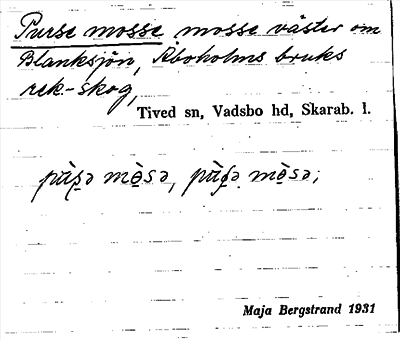 Purse mosse, mosse väster om
Blanksjön, Aboholms bruks
rek.-skog,
Tived sn, Vadsbo hd, Skarab. l.
mò̱sə, mò̱sə;
Maja Bergstrand 1931